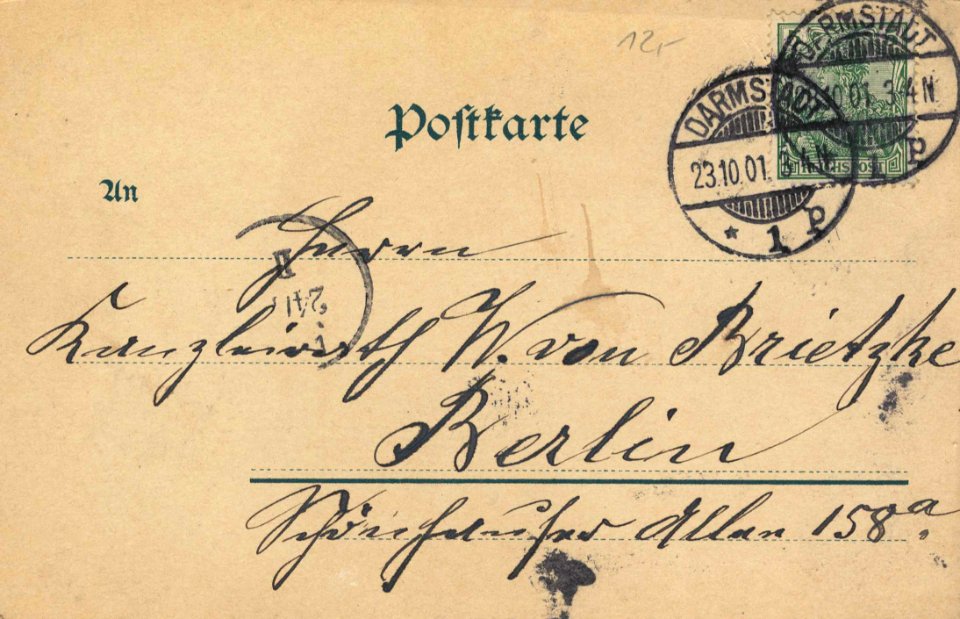 12,-
DARMSTADT
23.10.01. 3-4 N.
* 1 P
DARMSTADT
10.01. 3-4 N.
1 P
REICHSPOST
Postkarte
An
Herrn
Kanzleirath W. von Brietzke
Berlin
Schönhauser Allee 158a.